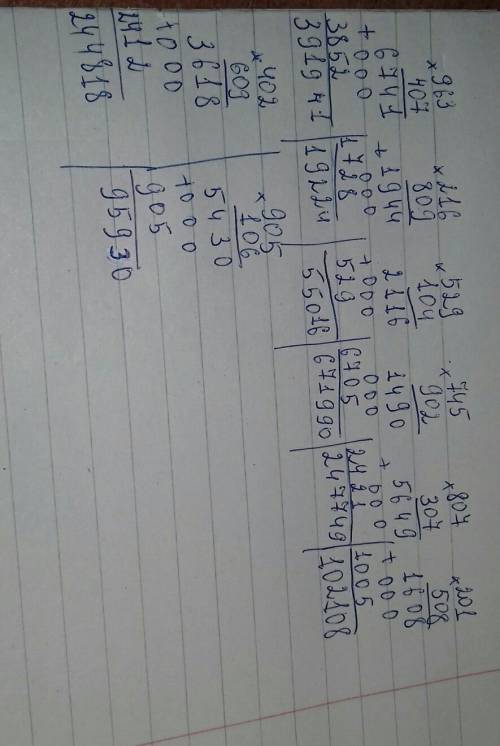 ×963
407
6741
+000
3852
391941
×216
809
1944
+000
1728
19224
×529
104
2116
+000
529
55016
×745
902
1490
000
6705
671990
×807
307
5649
+000
2421
247749
×201
508
1608
+000
1005
102108
×402
609
3618
+000
2412
244818
×905
106
5430
+000
905
95930